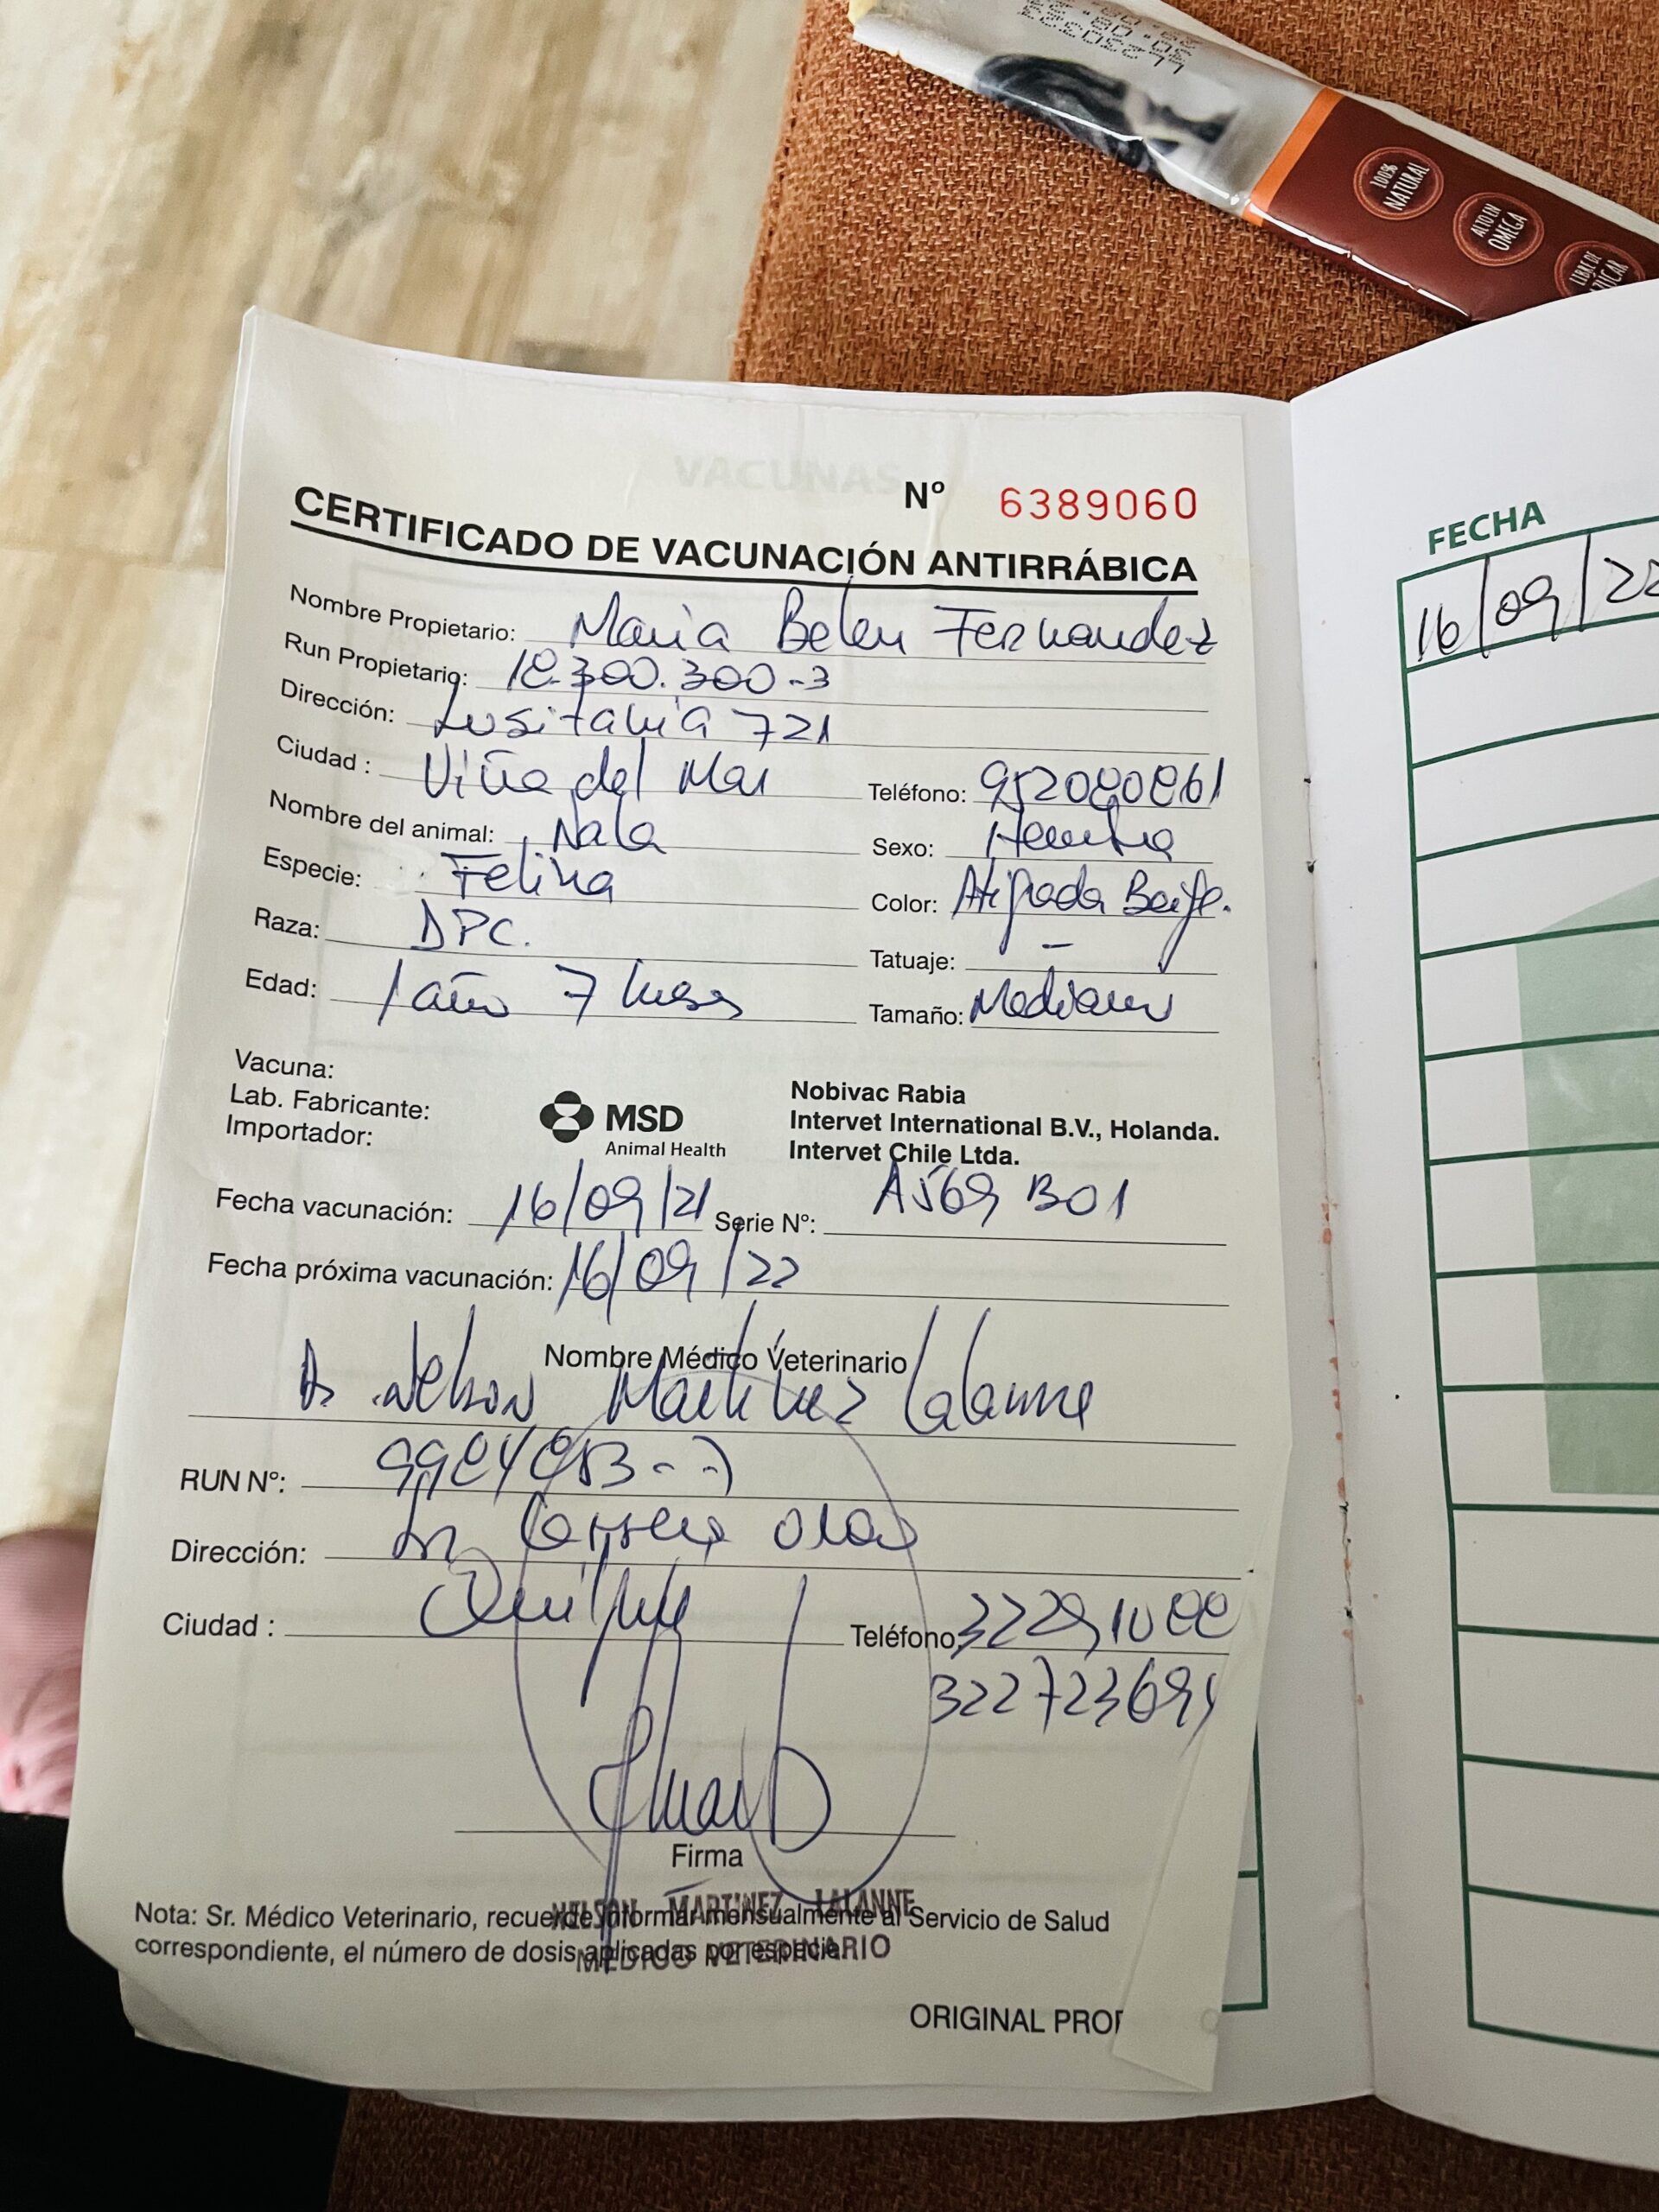 LL230323
30.08.23
100% NATURAL
ALTO EN OMEGA
LIBRE DE AZÚCAR
VACUNAS
Nº 6389060
CERTIFICADO DE VACUNACIÓN ANTIRRÁBICA
Nombre Propietario: Maria Belen Fernandez
Run Propietario: 18.300.300-3
Dirección: Lusitania 721
Ciudad : Viña del Mar Teléfono: 952080861
Nombre del animal: Nala Sexo: Hembra
Especie: Felina Color: Atigrada Beige.
Raza: DPC. Tatuaje: –
Edad: 1 año 7 meses Tamaño: Mediano
Vacuna: Nobivac Rabia
Lab. Fabricante: MSD Intervet International B.V., Holanda.
Importador: Animal Health Intervet Chile Ltda.
Fecha vacunación: 16/09/21 Serie Nº: A569 B01
Fecha próxima vacunación: 16/09/22
Nombre Médico Veterinario
Dr. Nelson Martinez Lalanne
RUN Nº: 9984853-7
Dirección: Carrera
Ciudad : Quilpue Teléfono: 322910 88
322723694
Firma
NELSON MARTINEZ LALANNE
MEDICO VETERINARIO
Nota: Sr. Médico Veterinario, recuerde informar mensualmente al Servicio de Salud
correspondiente, el número de dosis aplicadas por especie.
ORIGINAL
FECHA
16/09/22